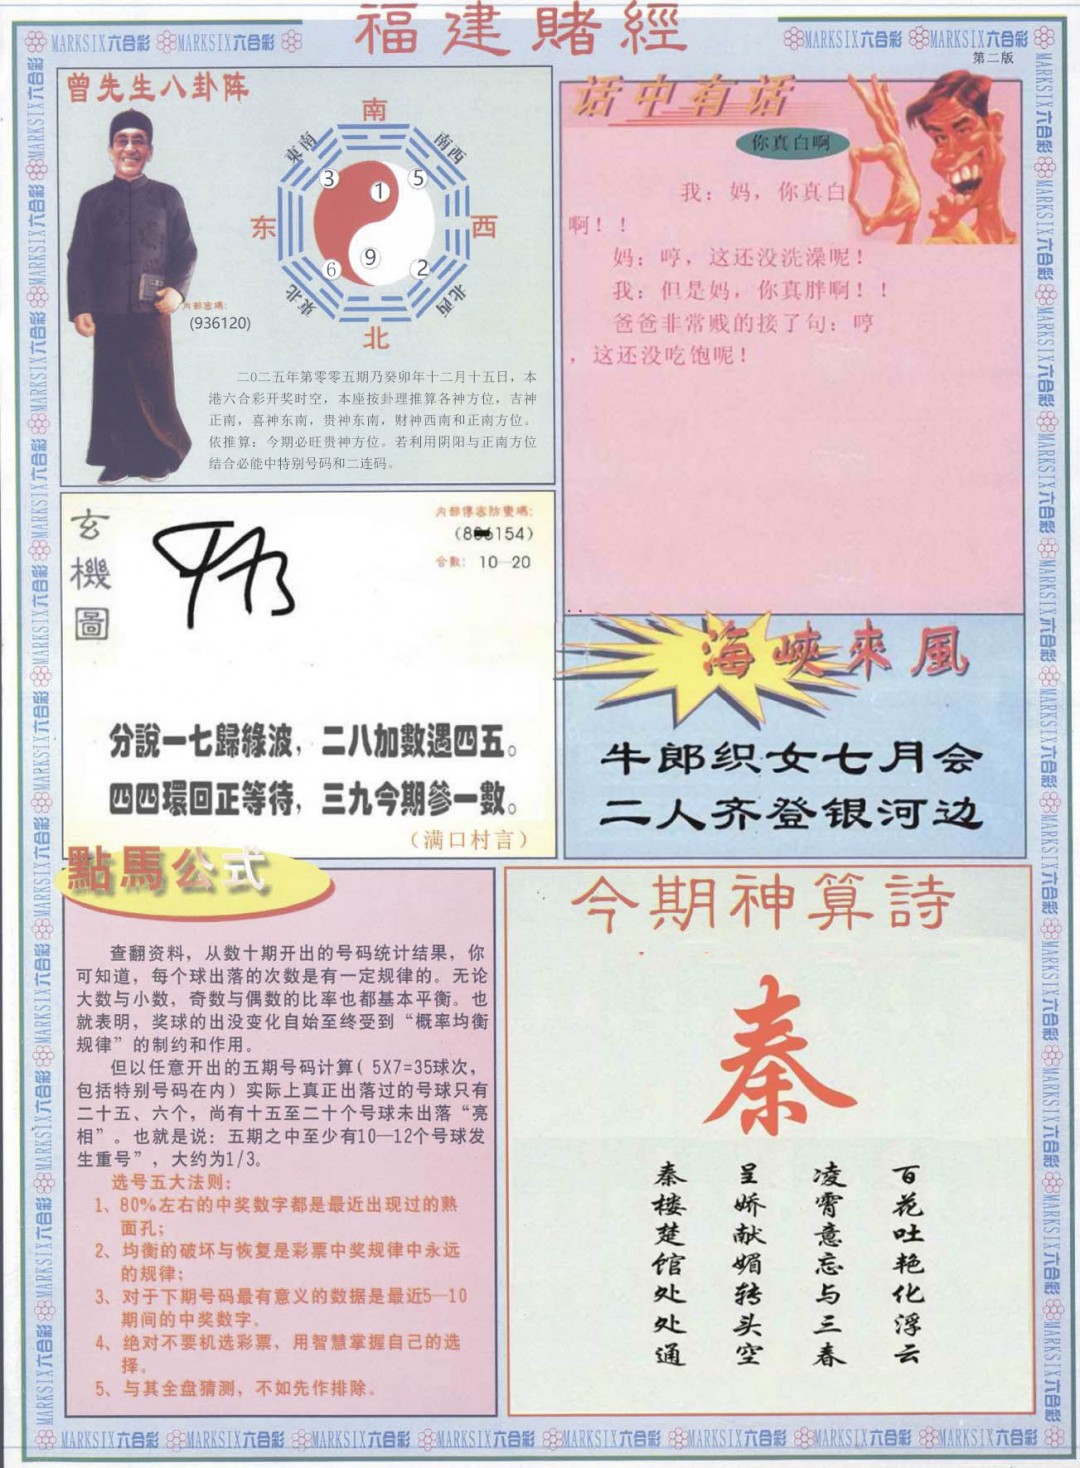 福建賭經
MARKSIX六合彩 MARKSIX六合彩 MARKSIX六合彩 MARKSIX六合彩
第二版
曾先生八卦阵
南
東南
南西
3
1
5
东
西
6
9
2
東北
北西
北
内部密碼:
(936120)
二〇二五年第零零五期乃癸卯年十二月十五日，本
港六合彩开奖时空，本座按卦理推算各神方位，吉神
正南，喜神东南，贵神东南，财神西南和正南方位。
依推算：今期必旺贵神方位。若利用阴阳与正南方位
结合必能中特别号码和二连码。
话中有话
你真白啊
我：妈，你真白
啊！！
妈：哼，这还没洗澡呢！
我：但是妈，你真胖啊！！
爸爸非常贱的接了句：哼
，这还没吃饱呢！
玄機圖
内部傳密防變碼:
154)
合數： 10—20
分說一七歸綠波，二八加數遇四五。
四四環回正等待，三九今期參一數。
（满口村言）
海峽來風
牛郎织女七月会
二人齐登银河边
點馬公式
查翻资料，从数十期开出的号码统计结果，你
可知道，每个球出落的次数是有一定规律的。无论
大数与小数，奇数与偶数的比率也都基本平衡。也
就表明，奖球的出没变化自始至终受到“概率均衡
规律”的制约和作用。
但以任意开出的五期号码计算( 5X7=35球次，
包括特别号码在内) 实际上真正出落过的号球只有
二十五、六个，尚有十五至二十个号球未出落“亮
相”。也就是说：五期之中至少有10—12个号球发
生重号”，大约为1/3。
选号五大法则:
1、80%左右的中奖数字都是最近出现过的熟
面孔;
2、均衡的破坏与恢复是彩票中奖规律中永远
的规律;
3、对于下期号码最有意义的数据是最近5—10
期间的中奖数字。
4、绝对不要机选彩票，用智慧掌握自己的选
择。
5、与其全盘猜测，不如先作排除。
今期神算詩
秦
百花吐艳化浮云
凌霄意忘与三春
呈娇献媚转头空
秦楼楚馆处处通
MARKSIX六合彩 MARKSIX六合彩 MARKSIX六合彩 MARKSIX六合彩 MARKSIX六合彩 MARKSIX六合彩 MARKSIX六合彩 MARKSIX六合彩